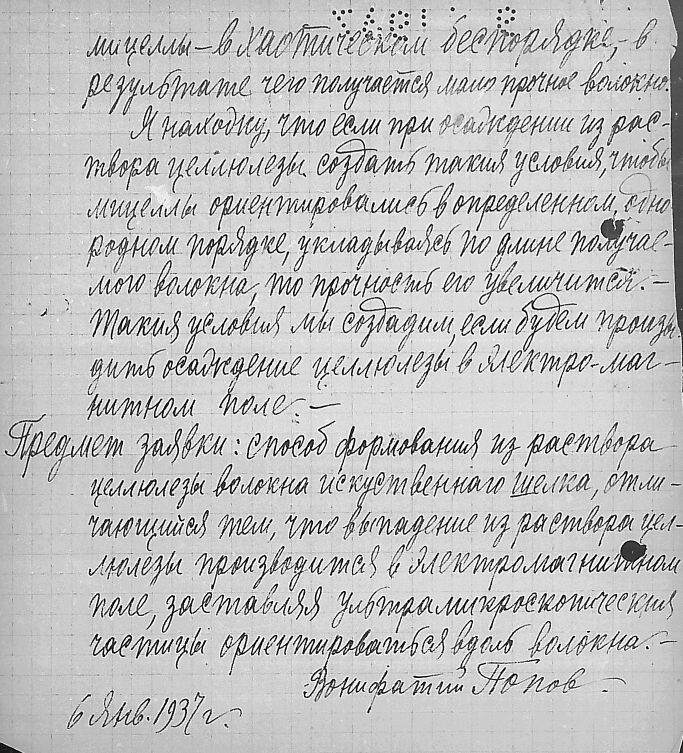 мицеллы – в хаотическом беспорядке, – в
результате чего получается мало прочное волокно.
Я нахожу, что если при осаждении из рас-
твора целлюлезы создать такия условия, чтобы
мицеллы ориентировались в определенном, одно
родном порядке, укладываясь по длине получае-
мого волокна, то прочность его увеличится. –
Такия условия мы создадим, если будем произво
дить осаждение целлюлезы в электро-маг-
нитном поле. –
Предмет заявки: способ формования из раствора
целлюлезы волокна искуственнаго щелка, отли-
чающийся тем, что выпадение из раствора цел-
люлезы производится в электромагнитном
поле, заставляя ультрамикроскопическия
частицы ориентироваться вдоль волокна. –
Вонифатий Попов. –
6 Янв. 1937 г.